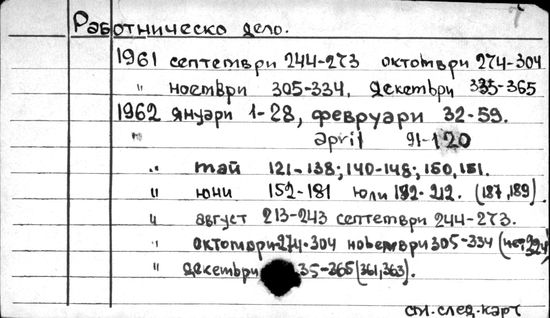 7
Работническо дело.
1961 септември 244-273 октомври 274-304
" ноември 305-334, декември 335-365
1962 януари 1-28, февруари 32-59.
" april 91-120
" май 121-138; 140-148; 150, 151.
" юни 152-181 юли 182-212. (187,189).
" август 213-243 септември 244-273.
" октомври 274-304 ноември 305-334
" декември 35-365 (361,363).
см. след. карт